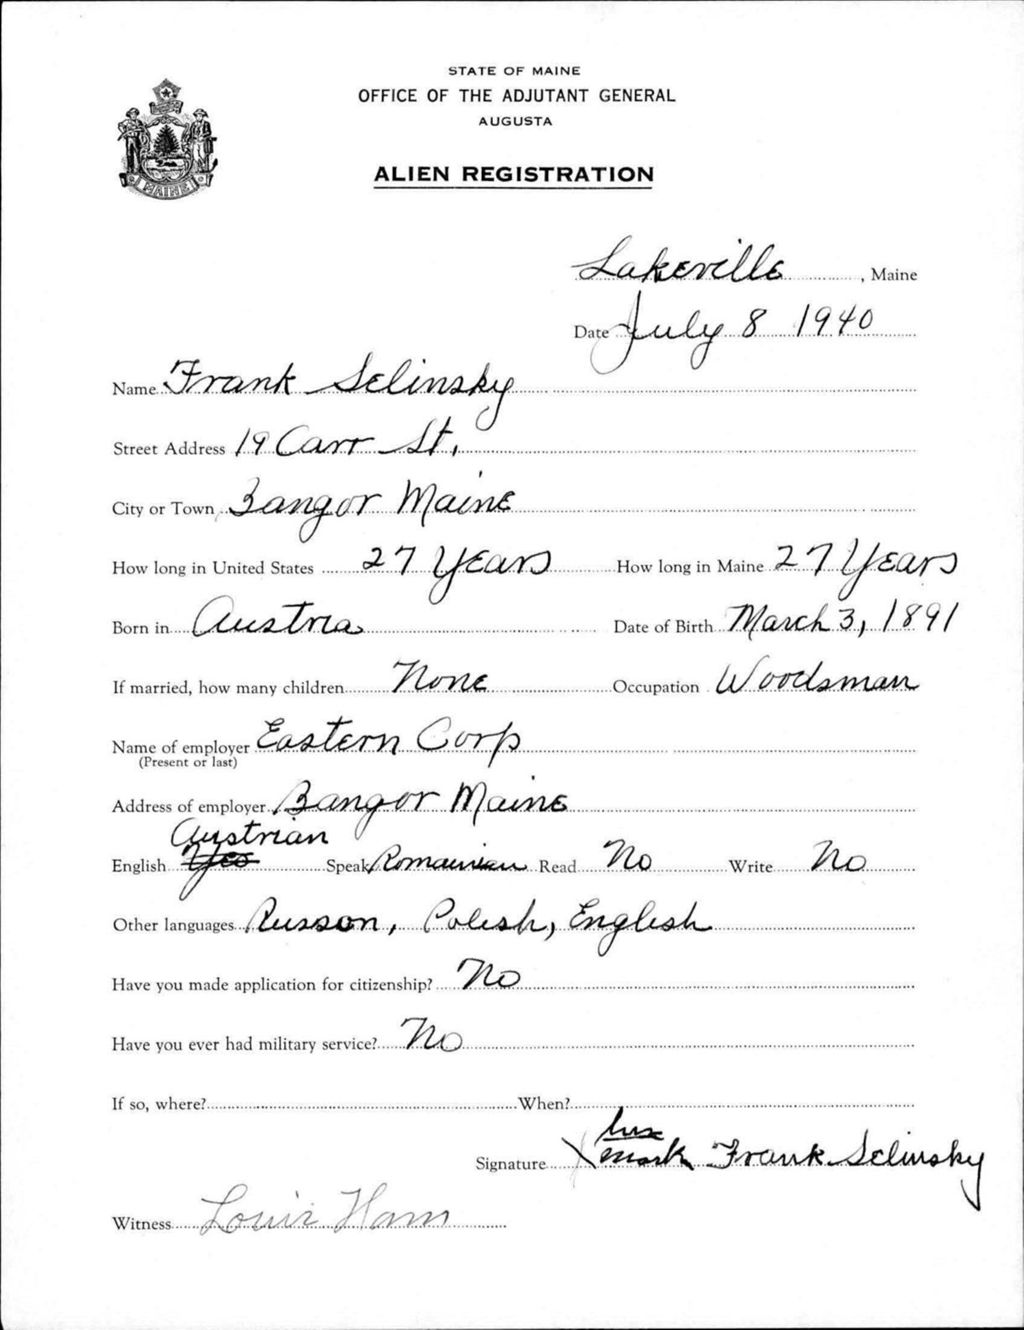 STATE OF MAINE
OFFICE OF THE ADJUTANT GENERAL
AUGUSTA
ALIEN REGISTRATION
MAINE
Lakeville, Maine
Date July 8 1940
Name Frank Selinsky
Street Address 19 Carr St.
City or Town Bangor Maine
How long in United States 27 Years How long in Maine 27 Years
Born in Austria Date of Birth March 3, 1891
If married, how many children None Occupation Woodsman
Name of employer Eastern Corp
(Present or last)
Address of employer Bangor Maine
Austrian
English Yes Speak Romainian Read No Write No
Other languages Russon, Polesh, English
Have you made application for citizenship? No
Have you ever had military service? No
If so, where? When?
his
Signature X mark Frank Selinsky
Witness Louis Ham